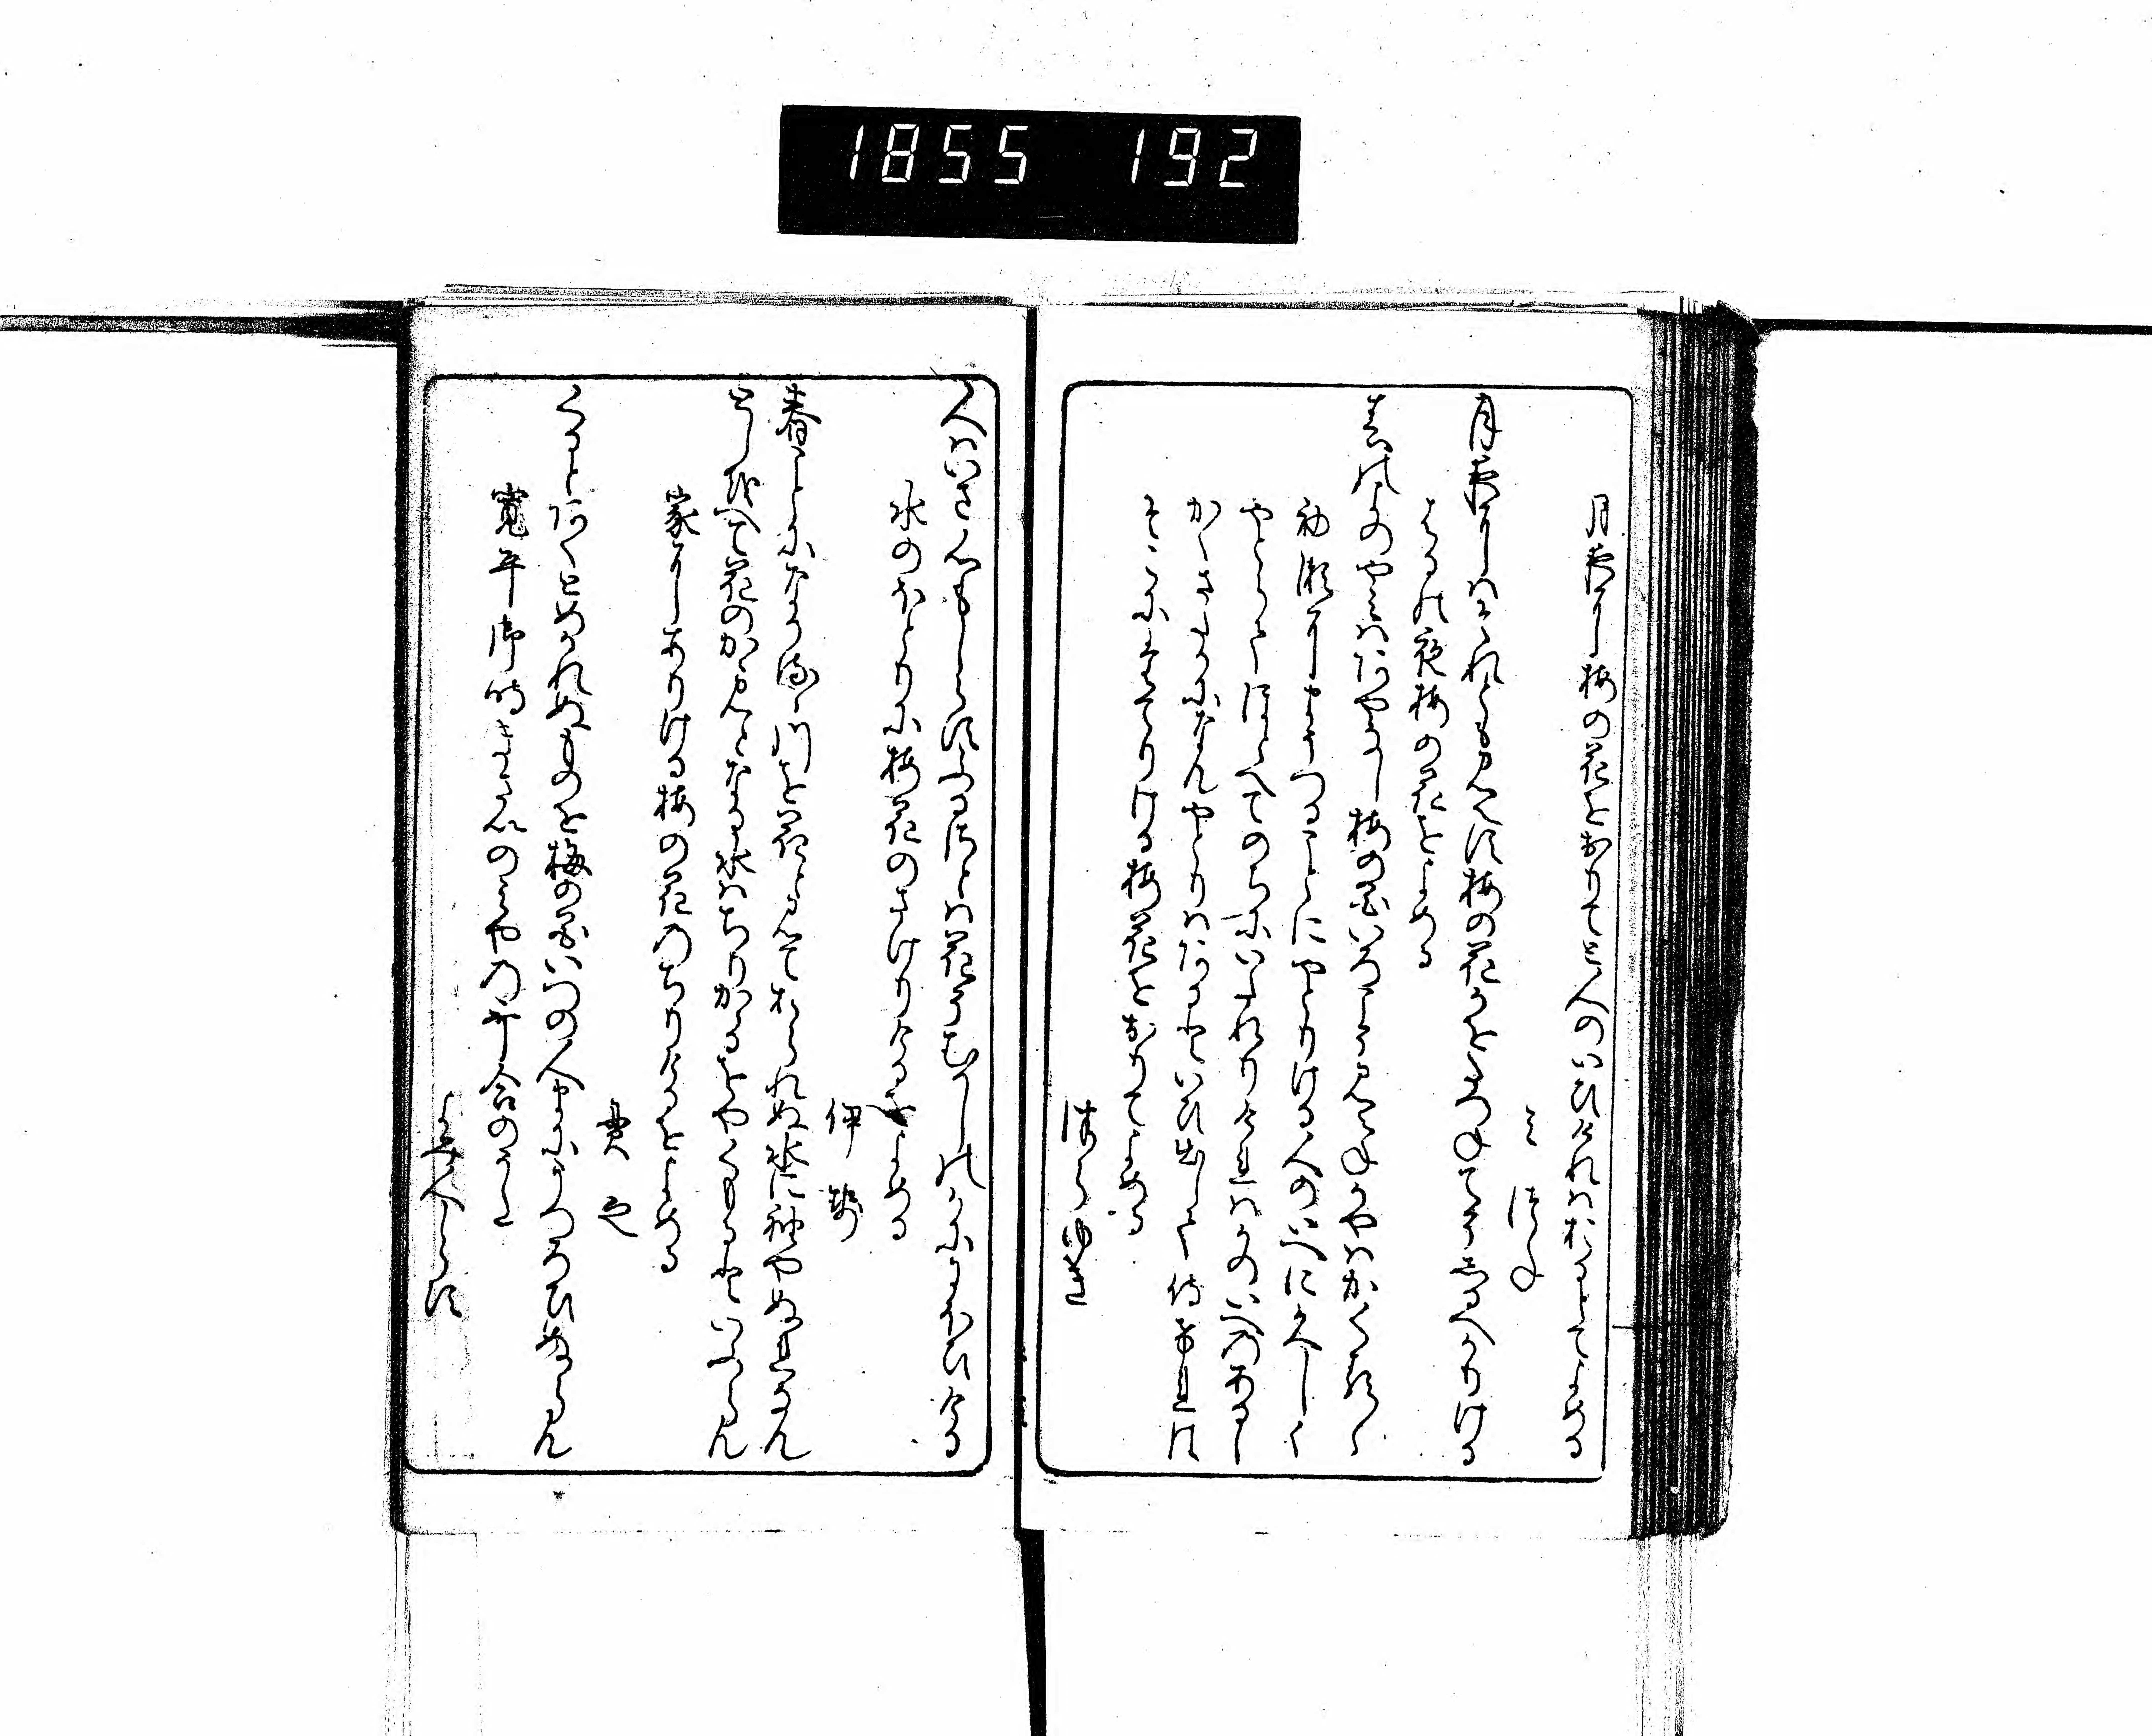 1855 192
月夜に梅の花をおりてと人のいひけれはおるとてよめる
みつね
月夜にはそれともみえす梅の花かをたつねてそしるへかりける
はるの夜梅の花をよめる
春の夜のやみはあやなし梅の花いろこそみえねかやはかくるゝ
初瀬にまうつることにやとりける人の家に久しく
やとらてほとへてのちにいたれりけれはかの家のあるし
かくさたかになんやとりはあるといひ出して侍けれは
そこにたてりける梅花をおりてよめる
つらゆき
人はいさ心もしらすふるさとは花そむかしのかににほひける
水のほとりに梅花のさけりけるをよめる
伊勢
春ことになかるゝ川を花とみておられぬ水に袖やぬれなん
としをへて花のかゝみとなる水はちりかゝるをやくもるといふらん
家にありける梅の花のちりけるをよめる
貫之
くるとあくとめかれぬものを梅の花いつの人まにうつろひぬらん
寛平御時きさいの宮の哥合のうた
よみ人しらす